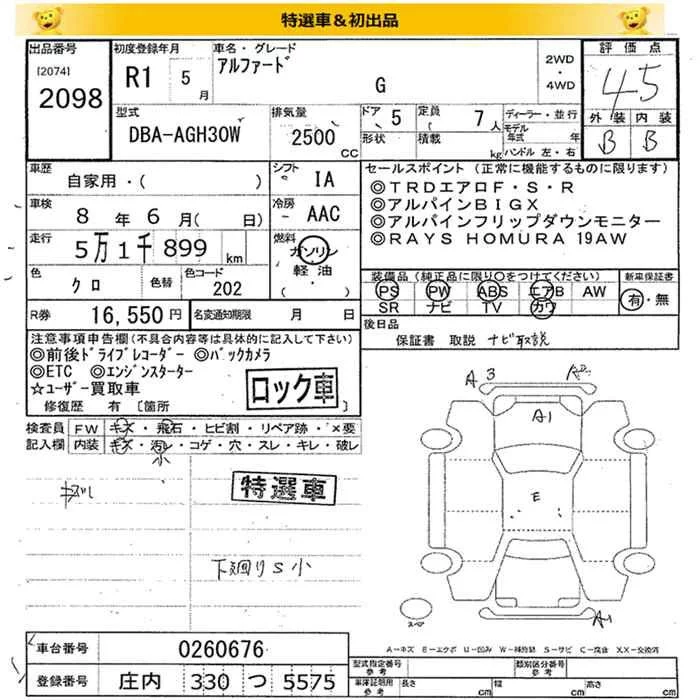 特選車&初出品
出品番号 初度登録年月 車名・グレード 評価点
[2074] アルファード 2WD
2098 R1 5月 G ・
4WD
4.5
型式 排気量 ドア 5 定員 7人 ディーラー・並行 外装 内装
DBA-AGH30W 2500CC 形状 積載 kg モデル年式 年 B B
ハンドル 左・右
車歴 シフト セールスポイント (正常に機能するものに限ります)
自家用・( ) IA ◎TRDエアロF・S・R
車検 冷房 ◎アルパインBIGX
8年6月(日) AAC ◎アルパインフリップダウンモニター
走行 燃料 ◎RAYS HOMURA 19AW
5万1千899km ガソリン
軽油・( )
色 色替 色コード 装備品(純正品に限り○をつけてください) 新車保証書
クロ 202 PS PW ABS エアB AW 有・無
SR ナビ TV カワ
R券 16,550円 名変通知期限 月 日 後日品
注意事項申告欄(不具合内容等は具体的に記入して下さい) 保証書 取説 ナビ取説
◎前後ドライブレコーダー ◎バックカメラ
◎ETC ◎エンジンスターター
☆ユーザー買取車 ロック車
修復歴 有 [箇所 ]
検査員記入欄 FW キズ・飛石・ヒビ割・リペア跡・×要
内装 キズ・汚レ・コゲ・穴・スレ・キレ・破レ
小
特選車
下廻りS小
A3
A1
E
A1
スペア
A-キズ E-エクボ U-凹み W-補修跡 S-サビ C-腐食 XX-交換済
車台番号 0260676 型式指定番号 参考 類別区分番号 参考
登録番号 庄内 330 つ 5575 車庫証明用 参考 長さ cm 幅 cm 高さ cm